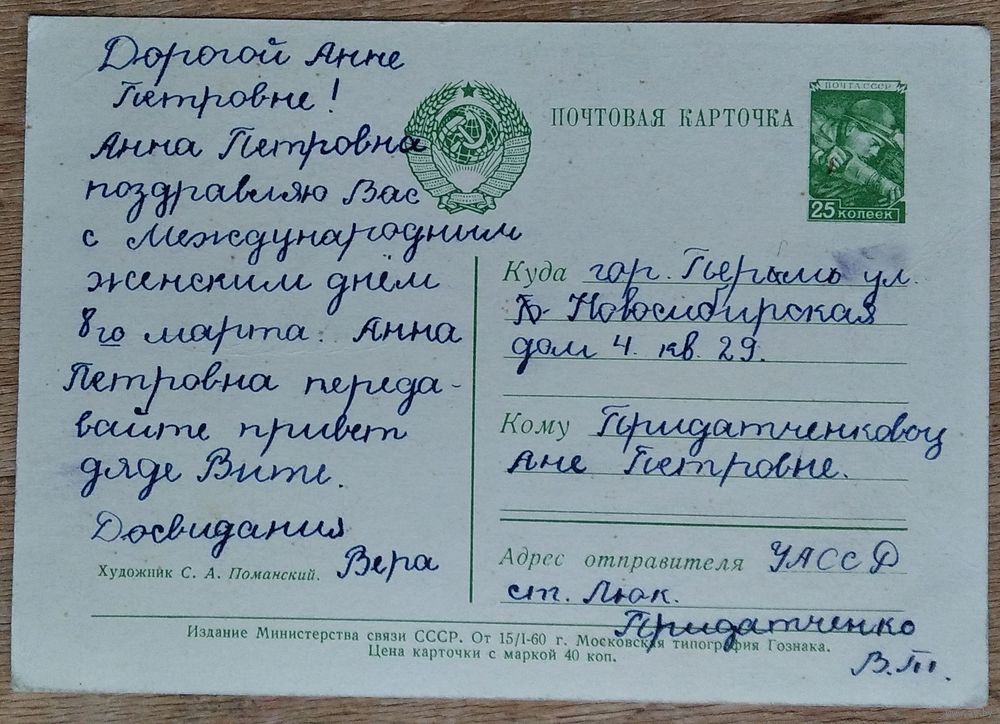 Дорогой Анне
Петровне!
Анна Петровна
поздравляю Вас
с Международним
женским днём
8го марта. Анна
Петровна переда-
вайте привет
дяде Вите.
Досвидания
Вера
Художник С. А. Поманский.
ПОЧТОВАЯ КАРТОЧКА
ПОЧТА СССР
25 копеек
Куда гор. Пермь ул.
Новосибирская
дом 4. кв. 29.
Кому Придатченковой
Ане Петровне.
Адрес отправителя УАССР
ст. Люк.
Придатченко
В.П.
Издание Министерства связи СССР. От 15/I-60 г. Московская типография Гознака.
Цена карточки с маркой 40 коп.